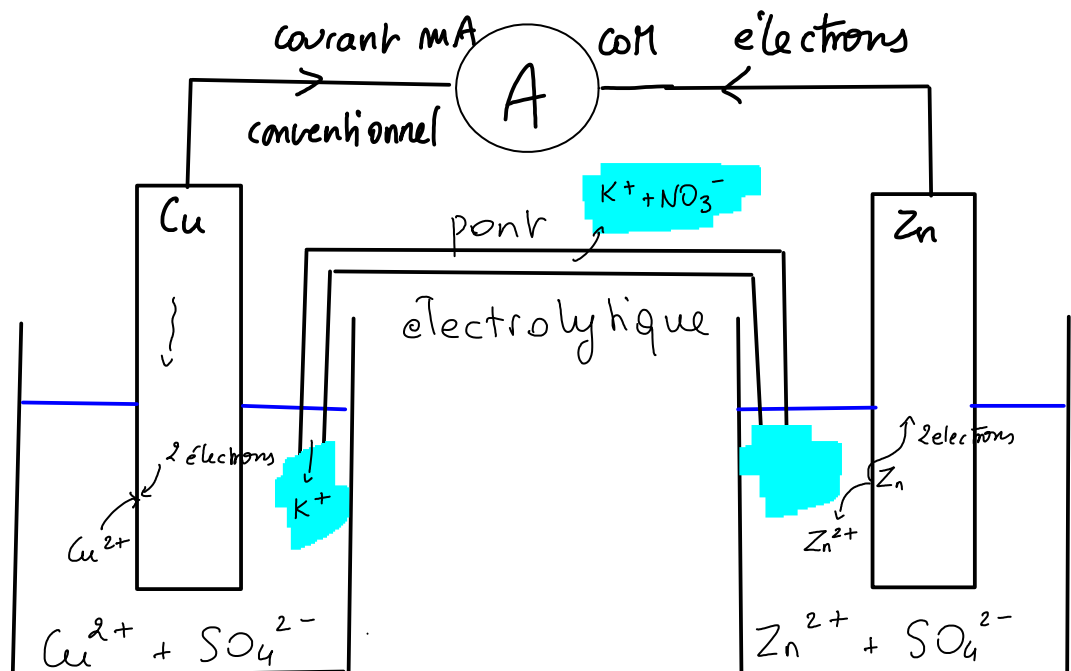 courant mA
COM
électrons
A
conventionnel
K⁺ + NO₃⁻
Cu
pont
Zn
électrolytique
2 électrons
2 electrons
K⁺
Zn
Cu²⁺
Zn²⁺
Cu²⁺ + SO₄²⁻
Zn²⁺ + SO₄²⁻